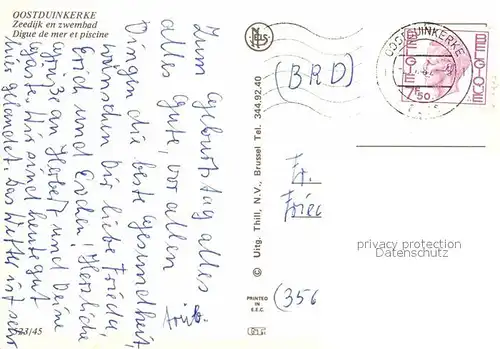 OOSTDUINKERKE
Zeedijk en zwembad
Digue de mer et piscine
Zum Geburtstag alles
alles Gute, vor allen
Dingen die beste Gesundheit,
wünschen Dir liebe Frieda,
Erich und Evchen! Herzliche
Grüße an Herbert und Deine
Gäste. Wir sind heute gut
hier gelandet. Das Wetter ist sehr
523/45
NELS
© Uitg. Thill, N.V., Brussel Tel. 344.92.40
PRINTED
IN
E.E.C.
OOSTDUINKERKE
BELGIE
BELGIQUE
7F50
(BRD)
Fr.
Frie
(356
privacy protection
Datenschutz